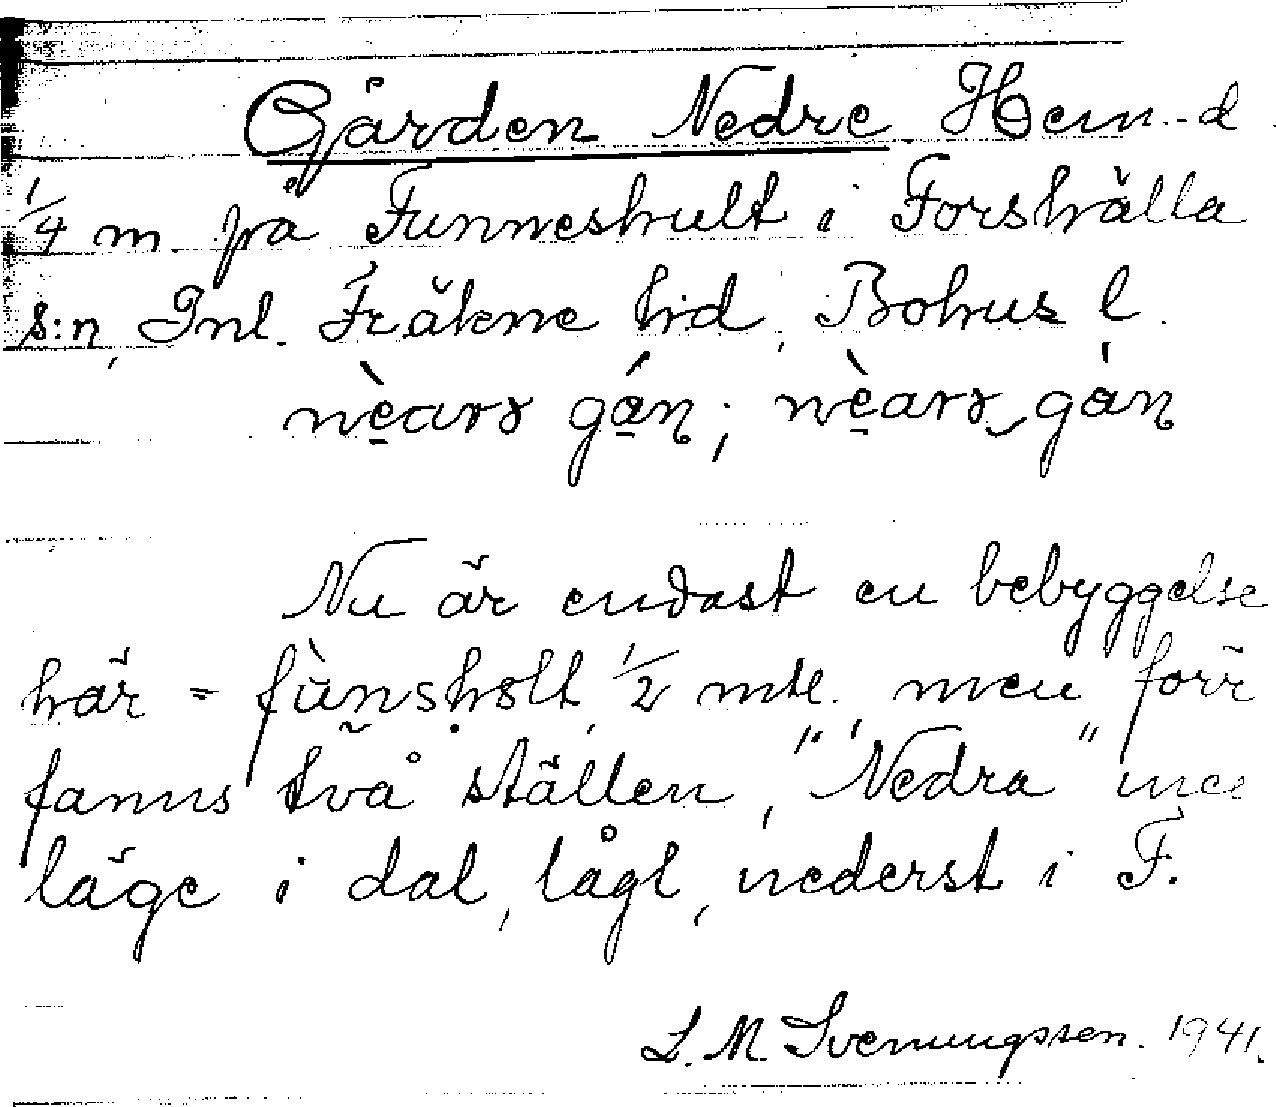 Gården Nedre Hem-d
1/4 m på Funneshult i Forshälla
s:n, Inl. Fräkne hd, Bohus l.
nèarɤ gán; nèarɤ gån
Nu är endast en bebyggelse
här = fùnshɷlt, 1/2 mtl., men förr
fanns två ställen, "Nedra" med
läge i dal, lågt, nederst i F.
L. M. Svenungsson. 1941.